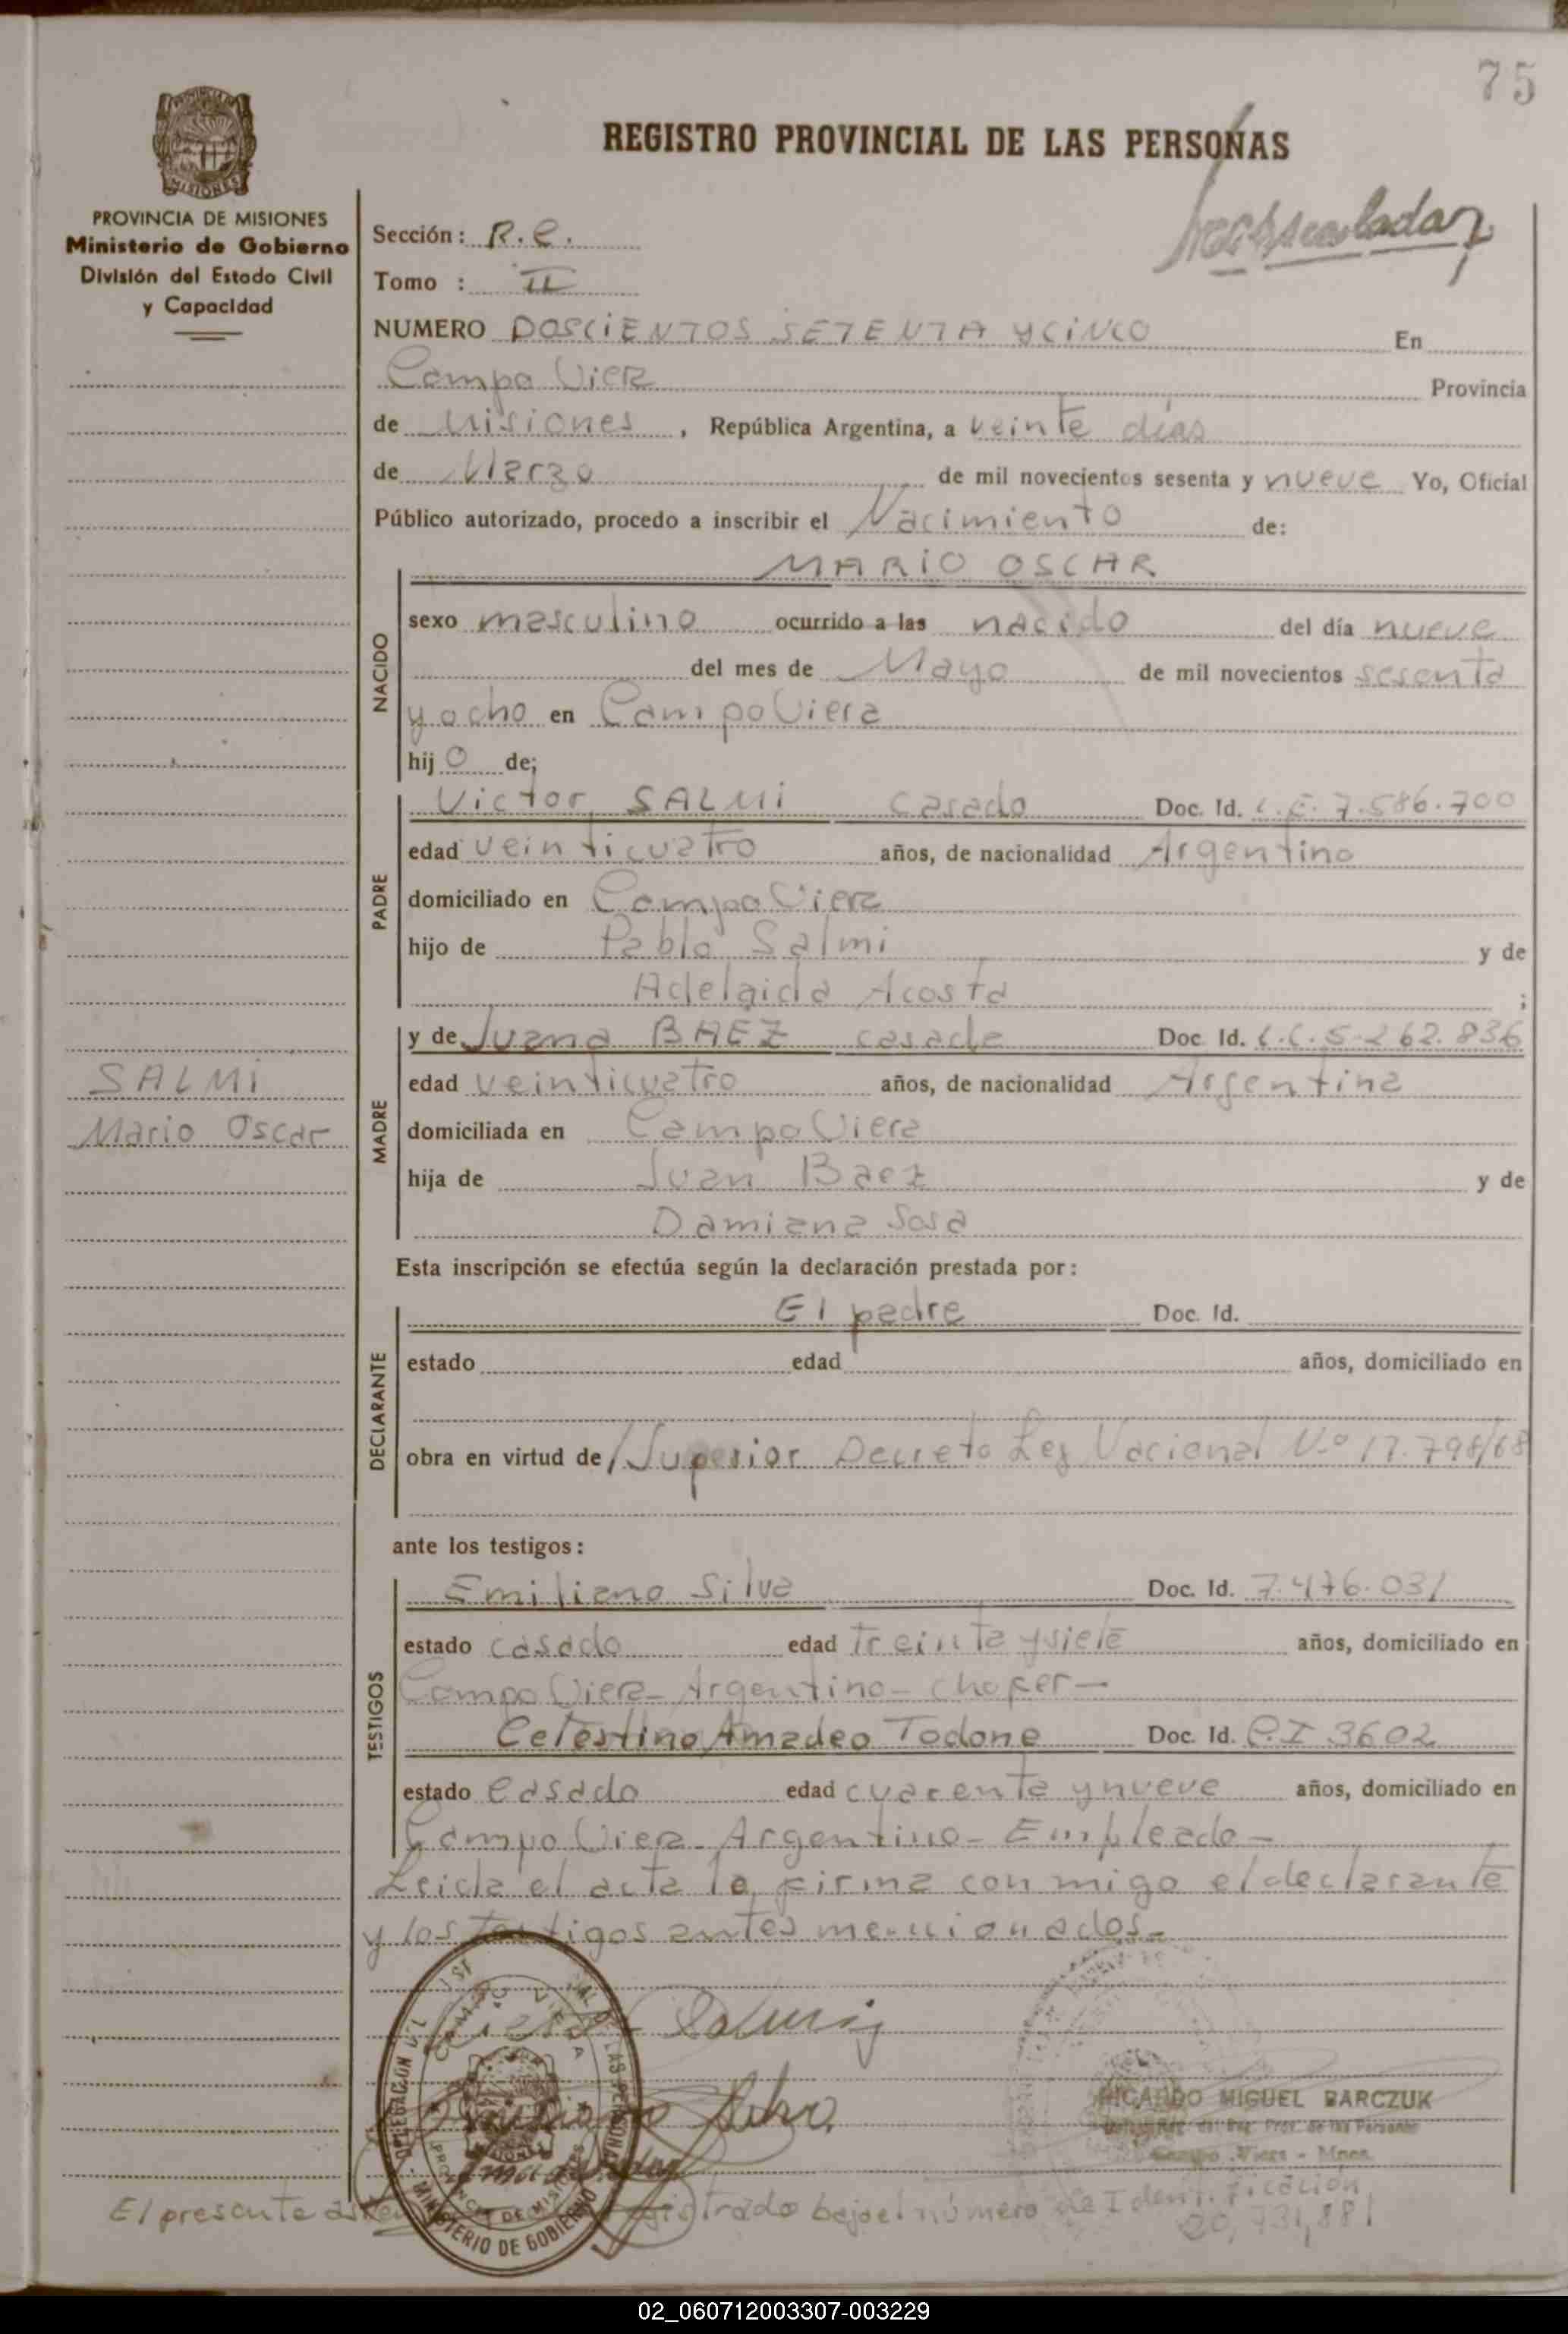 75
REGISTRO PROVINCIAL DE LAS PERSONAS
MISIONES
PROVINCIA DE MISIONES
Ministerio de Gobierno
División del Estado Civil
y Capacidad
Sección: R.C.
Tomo : II
NUMERO DOSCIENTOS SETENTA Y CINCO En
Campo Viera Provincia
de Misiones, República Argentina, a veinte días
de Marzo de mil novecientos sesenta y nueve Yo, Oficial
Público autorizado, procedo a inscribir el Nacimiento de:
MARIO OSCAR
NACIDO
sexo masculino ocurrido a las nacido del día nueve
del mes de Mayo de mil novecientos sesenta
y ocho en Campo Viera
hijo de;
PADRE
Victor SALMI casado Doc. Id. L.E. 7.586.700
edad veinticuatro años, de nacionalidad Argentino
domiciliado en Campo Viera
hijo de Pablo Salmi y de
Adelaida Acosta ;
MADRE
y de Juana BAEZ casada Doc Id. L.C. 5.262.836
edad veinticuatro años, de nacionalidad Argentina
domiciliada en Campo Viera
hija de Juan Baez y de
Damiana Sosa
SALMI
Mario Oscar
Esta inscripción se efectúa según la declaración prestada por:
DECLARANTE
El padre Doc. Id.
estado edad años, domiciliado en
obra en virtud de / Superior Decreto Ley Nacional N.º 17.798/68
ante los testigos:
TESTIGOS
Emiliano Silva Doc. Id. 7.476.031
estado casado edad treinta y siete años, domiciliado en
Campo Viera - Argentino - chofer -
Celestino Amadeo Todone Doc. Id. C.I 3602
estado casado edad cuarenta y nueve años, domiciliado en
Campo Viera - Argentino - Empleado -
Leida el acta la firma con migo el declarante
y los testigos antes mencionados.-
Salmi
Silva
RICARDO MIGUEL BARCZUK
Campo Viera - Mnes.
MINISTERIO DE GOBIERNO
PROVINCIA DE MISIONES
El presente registrado bajo el número de Identificación
20,731,881
02_060712003307-003229